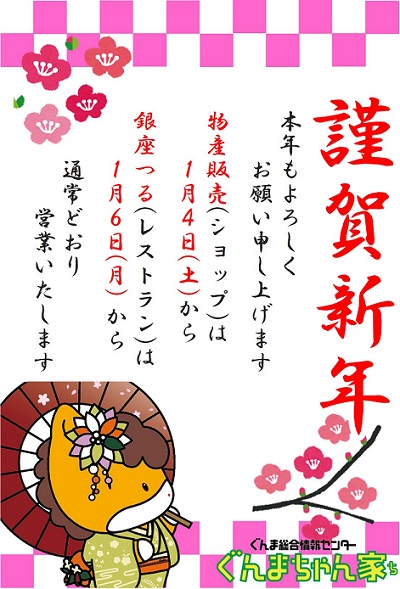 謹賀新年
本年もよろしく
お願い申し上げます
物産販売(ショップ)は
1月4日(土)から
銀座つる(レストラン)は
1月6日(月)から
通常どおり
営業いたします
ぐんま総合情報センター
ぐんまちゃん家
ち